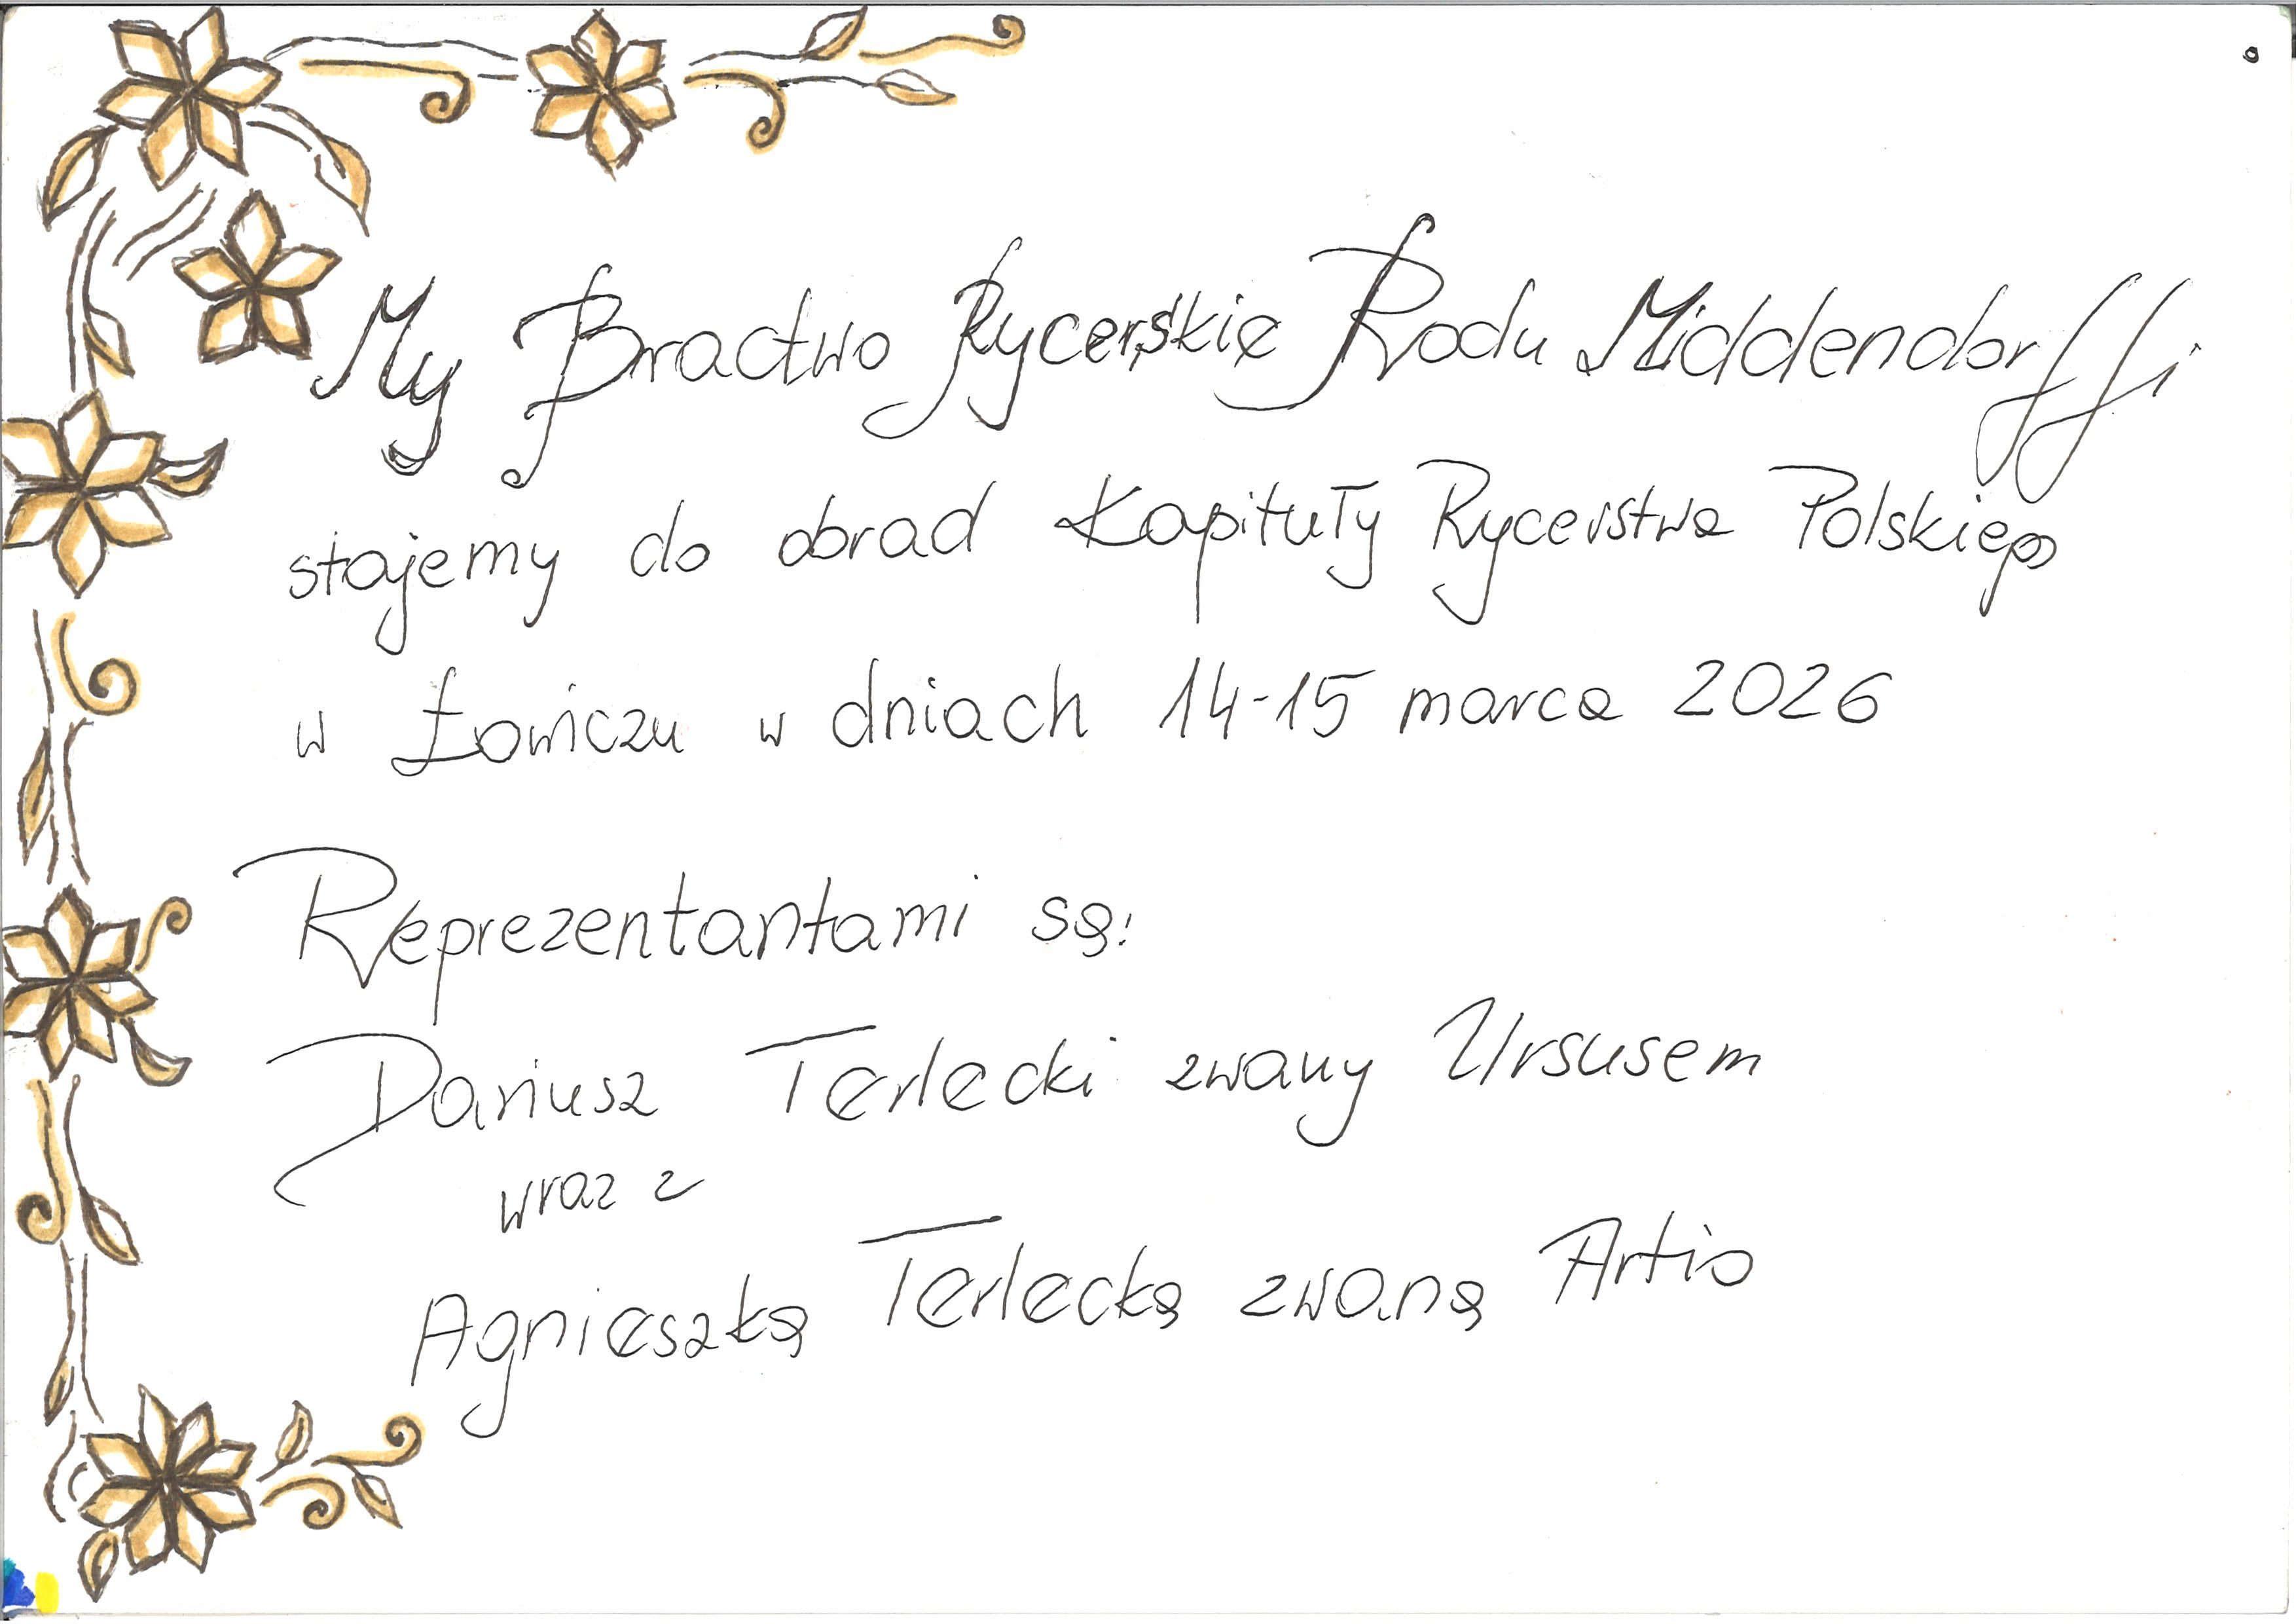 My Bractwo Rycerskie Rodu Middendorffi
stajemy do obrad Kapituły Rycerstwa Polskiego
w Łowiczu w dniach 14-15 marca 2026
Reprezentantami są:
Dariusz Terlecki zwany Ursusem
wraz z
Agnieszką Terlecką zwaną Artio